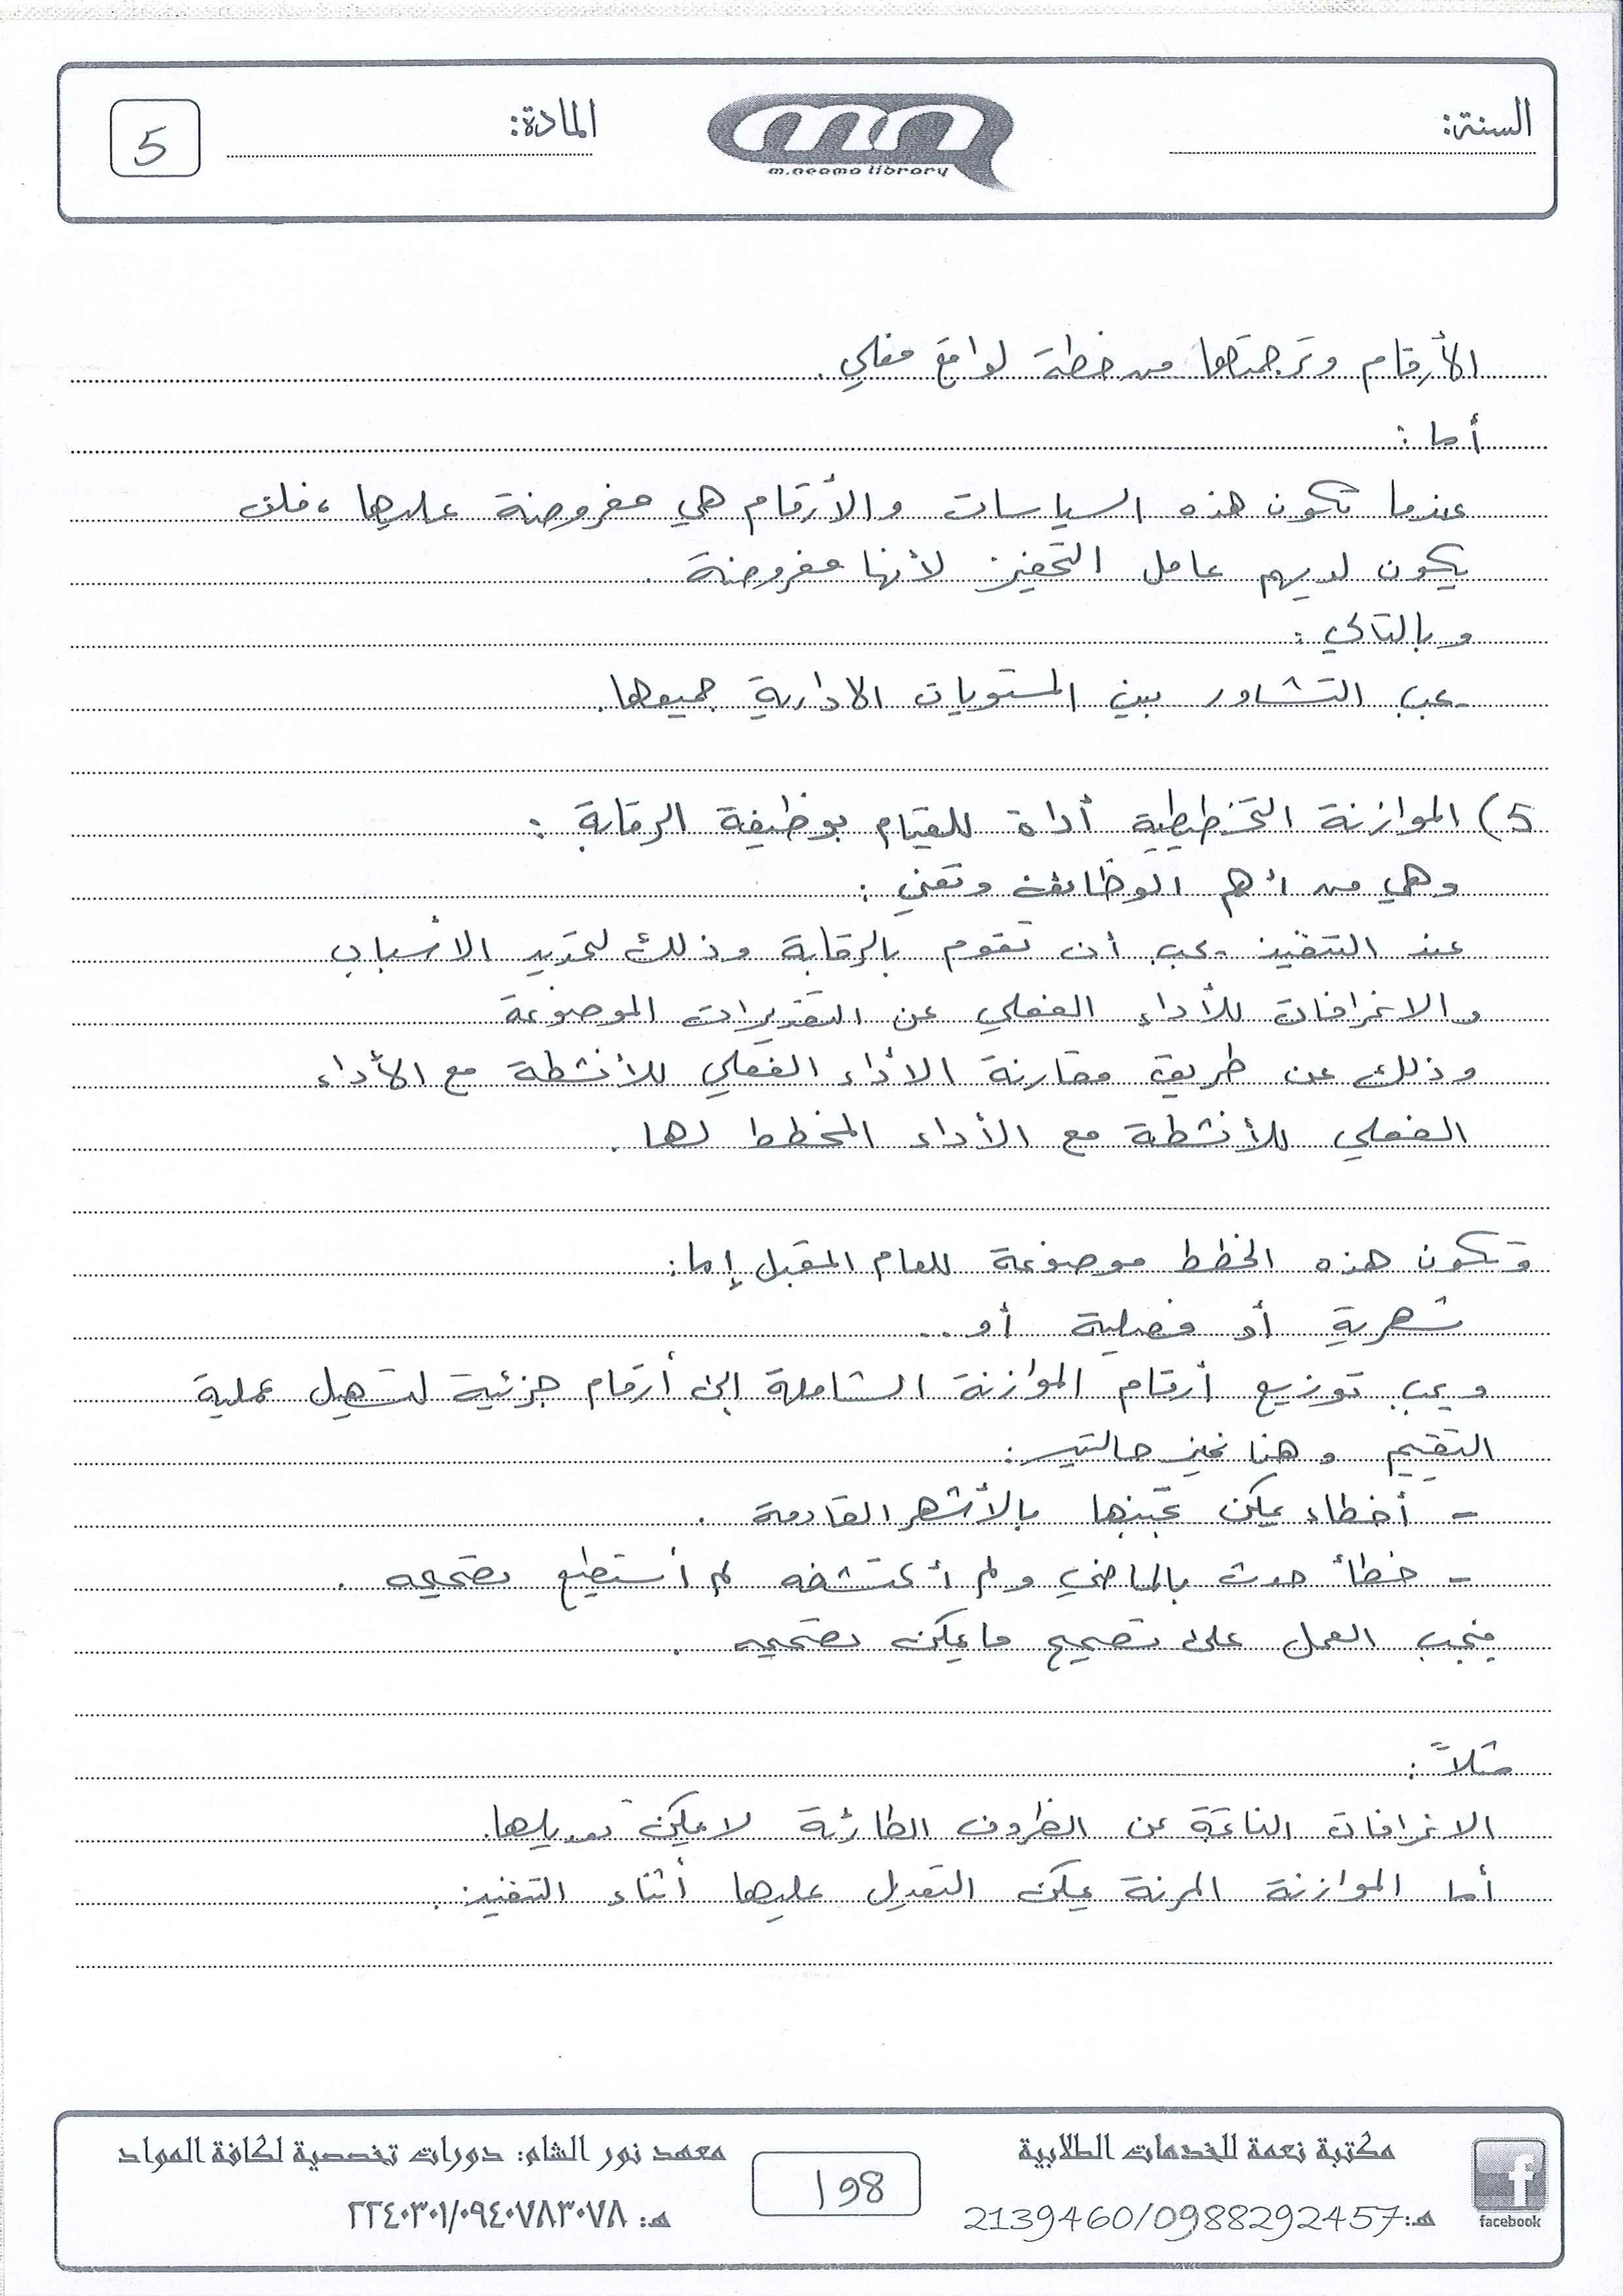 السنة:
m.neama library
المادة:
5
الأرقام وترجمتها من خطة لواقع فعلي.
أما :
عندما تكون هذه السياسات والأرقام هي مفروضة عليها، فلن
يكون لديهم عامل التحفيز لأنها مفروضة .
وبالتالي :
يجب التشاور بين المستويات الادارية جميعها.
5) الموازنة التخطيطية أداة للقيام بوظيفة الرقابة :
وهي من أهم الوظائف وتعني :
عند التنفيذ يجب أن تقوم بالرقابة وذلك لتحديد الأسباب
والانحرافات للأداء الفعلي عن التقديرات الموضوعة
وذلك عن طريق مقارنة الأداء الفعلي للأنشطة مع الأداء
الفعلي للأنشطة مع الأداء المخطط لها .
وتكون هذه الخطط موضوعة للعام المقبل إما:
شهرية أو فصلية أو ..
ويجب توزيع أرقام الموازنة الشاملة إلى أرقام جزئية لتسهيل عملية
التقييم وهنا نميز حالتين :
- أخطاء يمكن تجنبها بالأشهر القادمة .
- خطأ حدث بالماضي ولم أكتشفه لم أستطيع تصحيحه .
فيجب العمل على تصحيح ما يمكن تصحيحه .
مثلاً :
الانحرافات الناتجة عن الظروف الطارئة لا يمكن تعديلها.
أما الموازنة المرنة يمكن التعديل عليها أثناء التنفيذ .
مكتبة نعمة للخدمات الطلابية
هـ:2139460/0988292457
facebook
198
معهد نور الشام: دورات تخصصية لكافة المواد
هـ: ٢٢٤٠٣٠١/٠٩٤٠٧٨٣٠٧٨